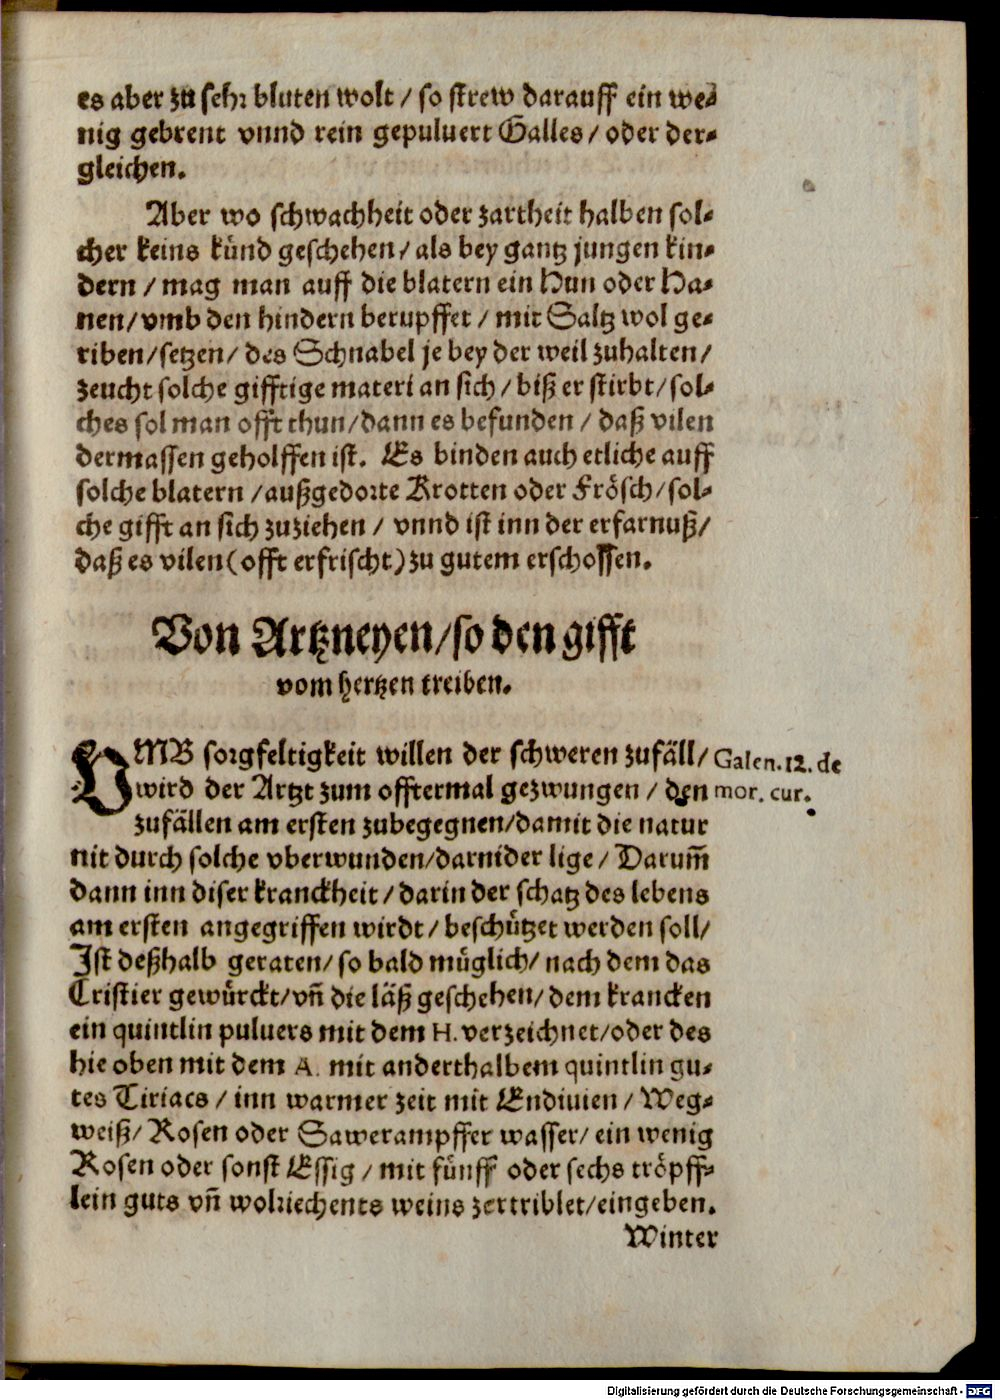 es aber zu sehr bluten wolt / so strew darauff ein we⸗
nig gebrent vnnd rein gepuluert Galles / oder der⸗
gleichen.
Aber wo schwachheit oder zartheit halben sol⸗
cher keins künd geschehen / als bey gantz jungen kin⸗
dern / mag man auff die blatern ein Hun oder Ha⸗
nen / vmb den hindern berupffet / mit Saltz wol ge⸗
riben / setzen / des Schnabel je bey der weil zuhalten /
zeucht solche gifftige materi an sich / biß er stirbt / sol⸗
ches sol man offt thun / dann es befunden / daß vilen
dermassen geholffen ist. Es binden auch etliche auff
solche blatern / außgedorte Krotten oder Frösch / sol⸗
che gifft an sich zuziehen / vnnd ist inn der erfarnuß /
daß es vilen (offt erfrischt) zu gutem erschossen.
Von Artzneyen / so den gifft
vom hertzen treiben.
VMB sorgfeltigkeit willen der schweren zufäll /
wird der Artzt zum offtermal gezwungen / den
zufällen am ersten zubegegnen / damit die natur
nit durch solche vberwunden / darnider lige / Darum̃
dann inn diser kranckheit / darin der schatz des lebens
am ersten angegriffen wirdt / beschützet werden soll /
Ist deßhalb geraten / so bald müglich / nach dem das
Cristier gewürckt / vñ die läß geschehen / dem krancken
ein quintlin puluers mit dem H. verzeichnet / oder des
hie oben mit dem A. mit anderthalbem quintlin gu⸗
tes Tiriacs / inn warmer zeit mit Endiuien / Weg⸗
weiß / Rosen oder Sawerampffer wasser / ein wenig
Rosen oder sonst Essig / mit fünff oder sechs tröpff⸗
lein guts vñ wolriechents weins zertriblet / eingeben.
Winter
Galen. 12. de
mor. cur.
Digitalisierung gefördert durch die Deutsche Forschungsgemeinschaft - DFG